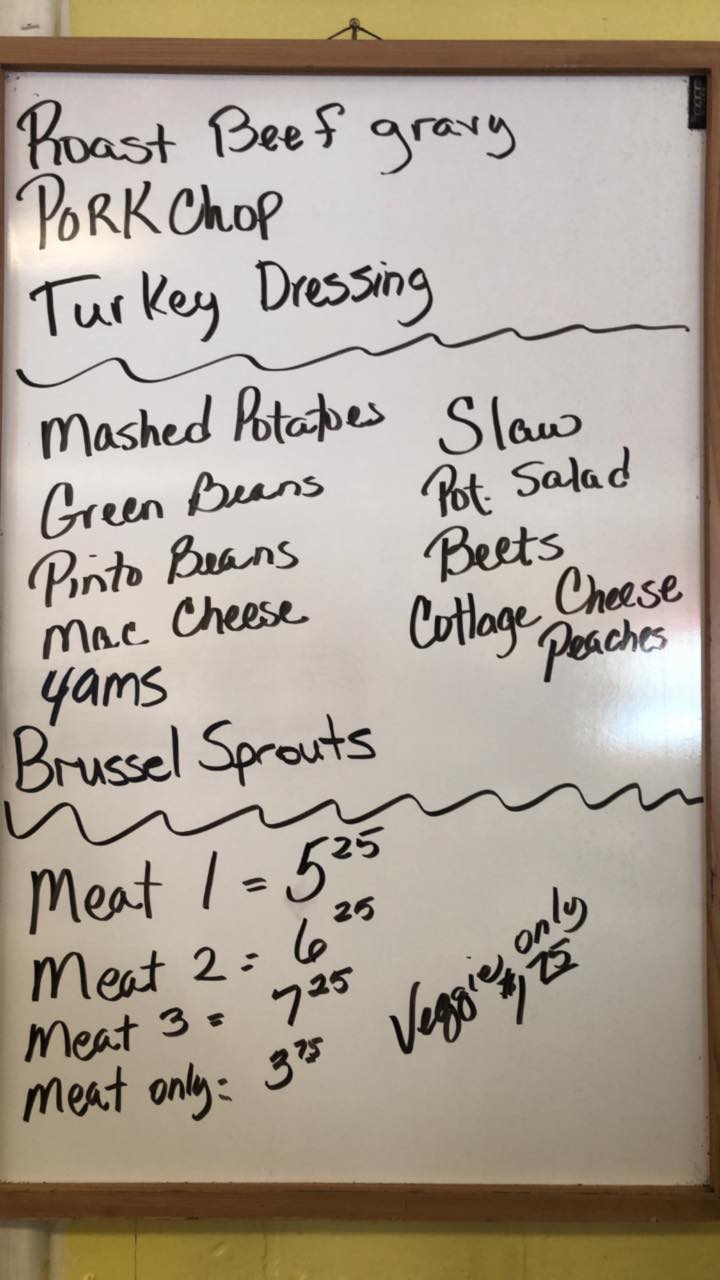 Roast Beef gravy
PORK Chop
Turkey Dressing
Mashed Potatoes
Green Beans
Pinto Beans
Mac Cheese
Yams
Brussel Sprouts
Slaw
Pot. Salad
Beets
Cottage Cheese
Peaches
Meat 1 = 5 25
Meat 2 = 6 25
Meat 3 = 7 25
Meat only = 3 75
Veggie only
$1 75